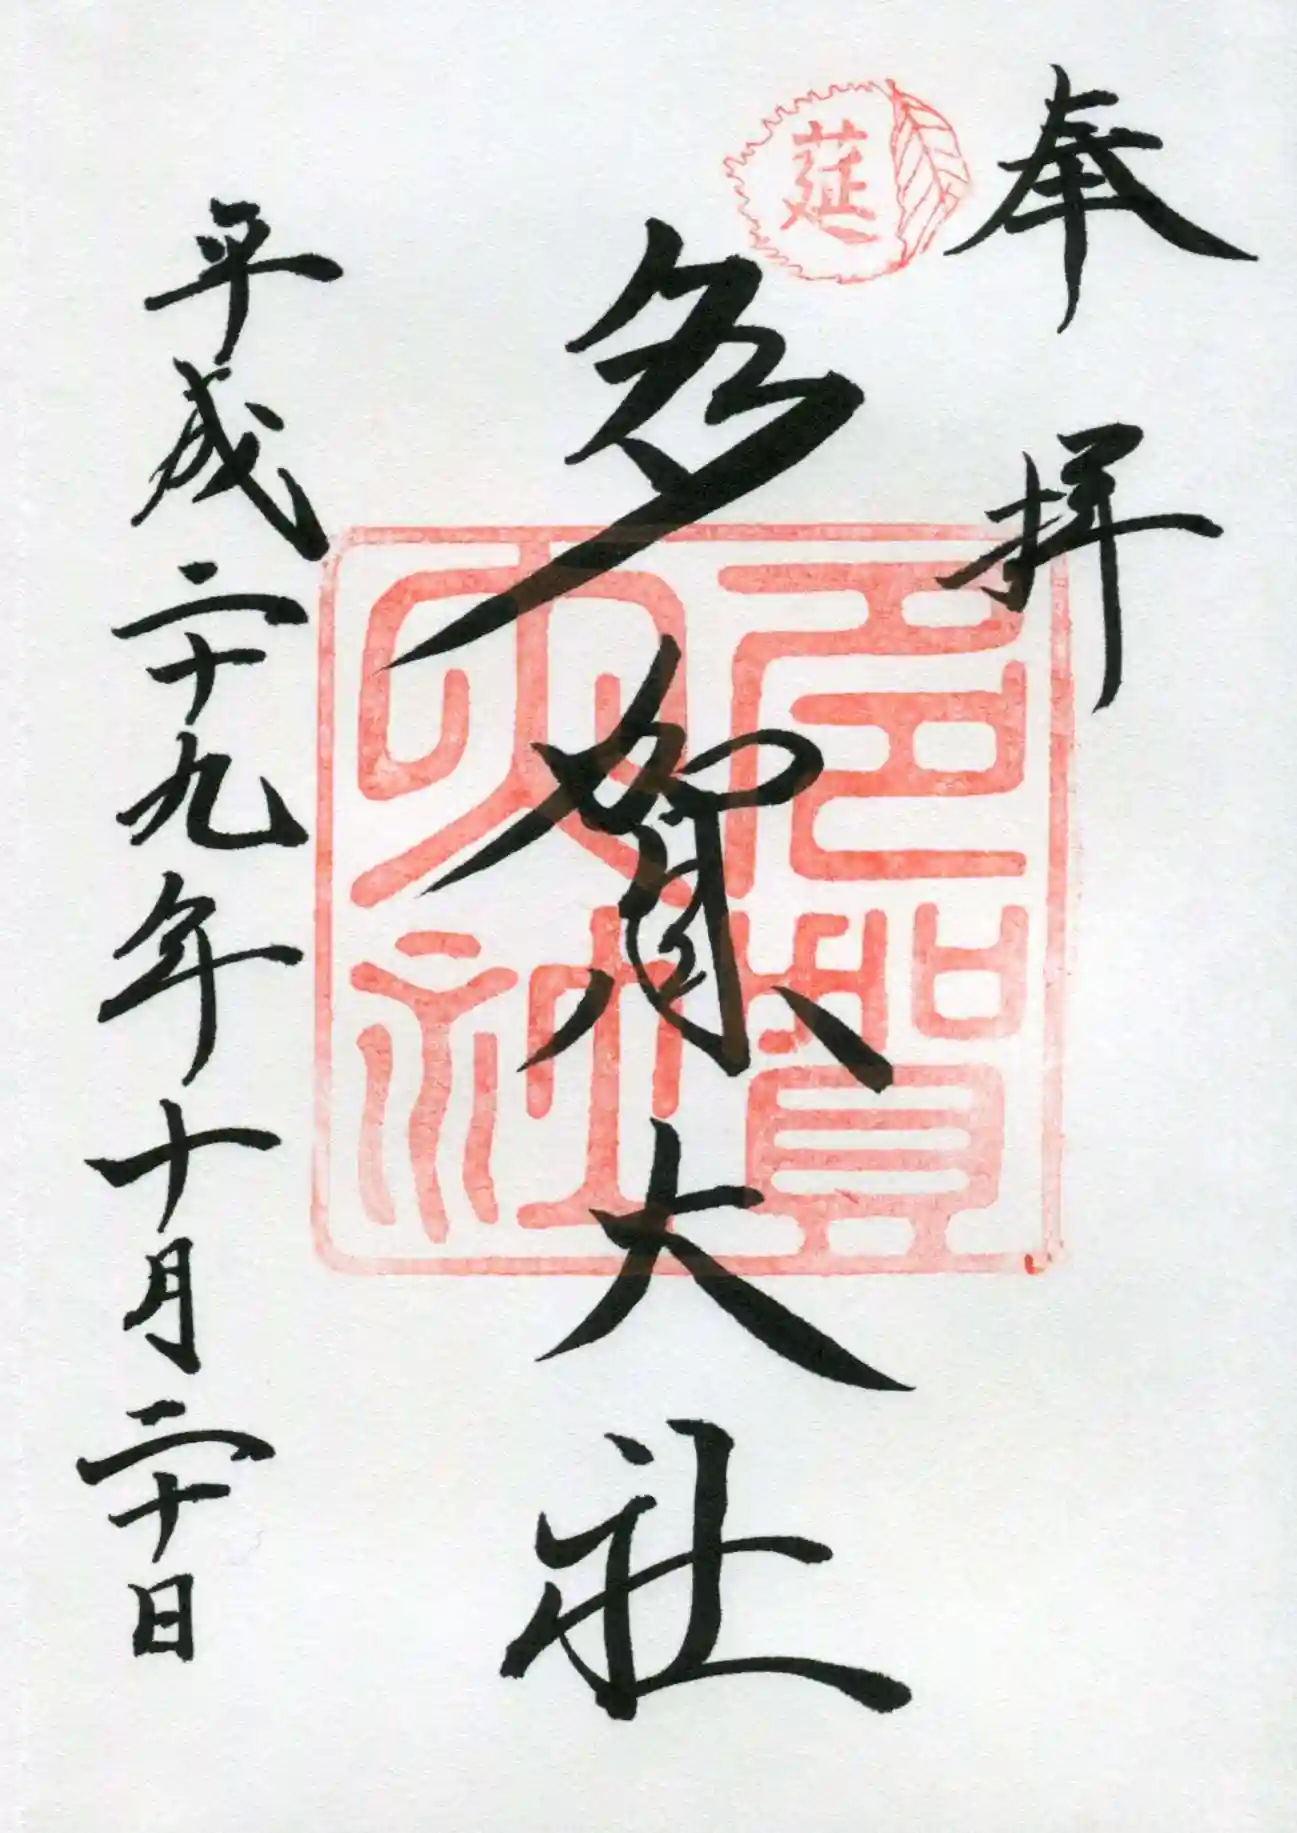 奉拝
莚
多賀大社
多賀大社
平成二十九年十月二十日